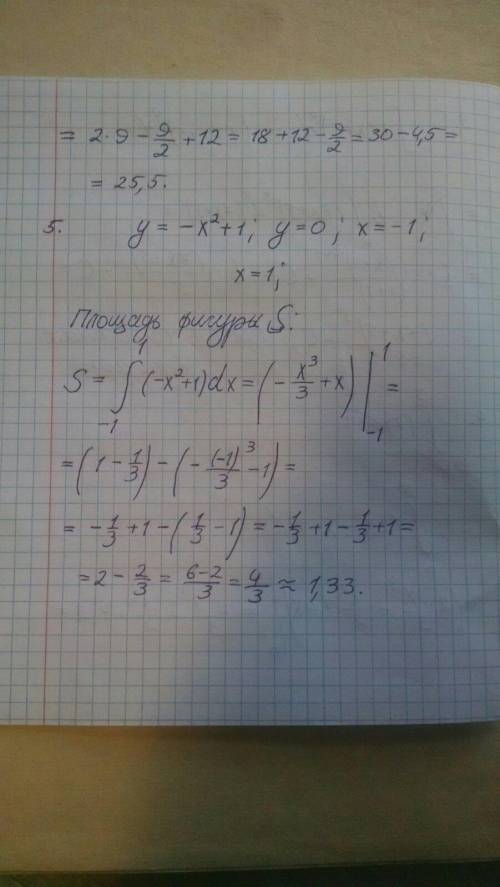 = 2·9 − 9/2 + 12 = 18 + 12 − 9/2 = 30 − 4,5 =
= 25,5.
5. y = −x²+1; y = 0; x = −1;
x = 1;
Площадь фигуры S:
S = ∫₋₁¹ (−x²+1)dx = (− x³/3 + x) |₋₁¹ =
= (1 − 1/3) − (− (−1)³/3 − 1) =
= − 1/3 + 1 − (1/3 − 1) = − 1/3 + 1 − 1/3 + 1 =
= 2 − 2/3 = (6−2)/3 = 4/3 ≈ 1,33.